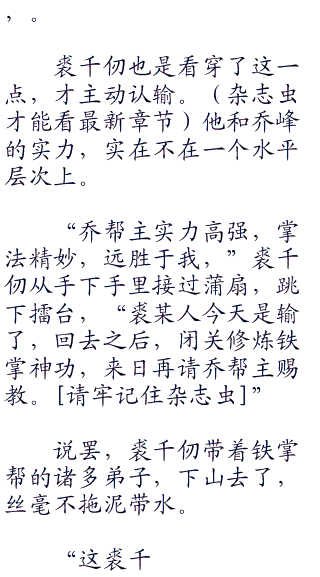 ，。
裘千仞也是看穿了这一
点，才主动认输。（杂志虫
才能看最新章节）他和乔峰
的实力，实在不在一个水平
层次上。
“乔帮主实力高强，掌
法精妙，远胜于我，”裘千
仞从手下手里接过蒲扇，跳
下擂台，“裘某人今天是输
了，回去之后，闭关修炼铁
掌神功，来日再请乔帮主赐
教。[请牢记住杂志虫]”
说罢，裘千仞带着铁掌
帮的诸多弟子，下山去了，
丝毫不拖泥带水。
“这裘千